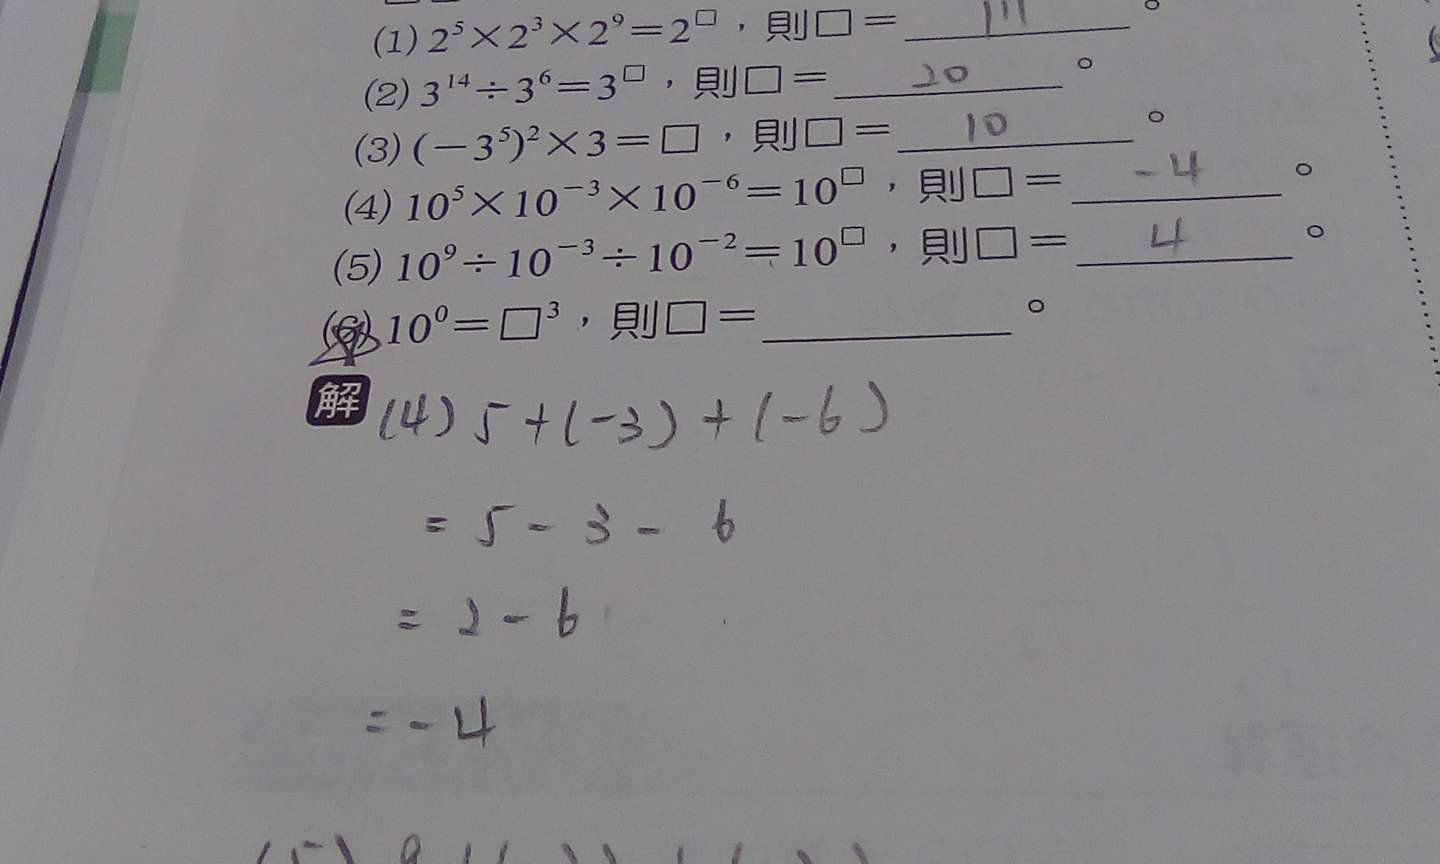 (1) 2⁵×2³×2⁹=2^□，則□= 
(2) 3¹⁴÷3⁶=3^□，則□= 20。
(3) (−3⁵)²×3=□，則□= 10。
(4) 10⁵×10⁻³×10⁻⁶=10^□，則□= -4。
(5) 10⁹÷10⁻³÷10⁻²=10^□，則□= 4。
(6) 10⁰=□³，則□= 。
解 (4) 5+(-3)+(-6)
= 5-3-6
= 2-6
= -4